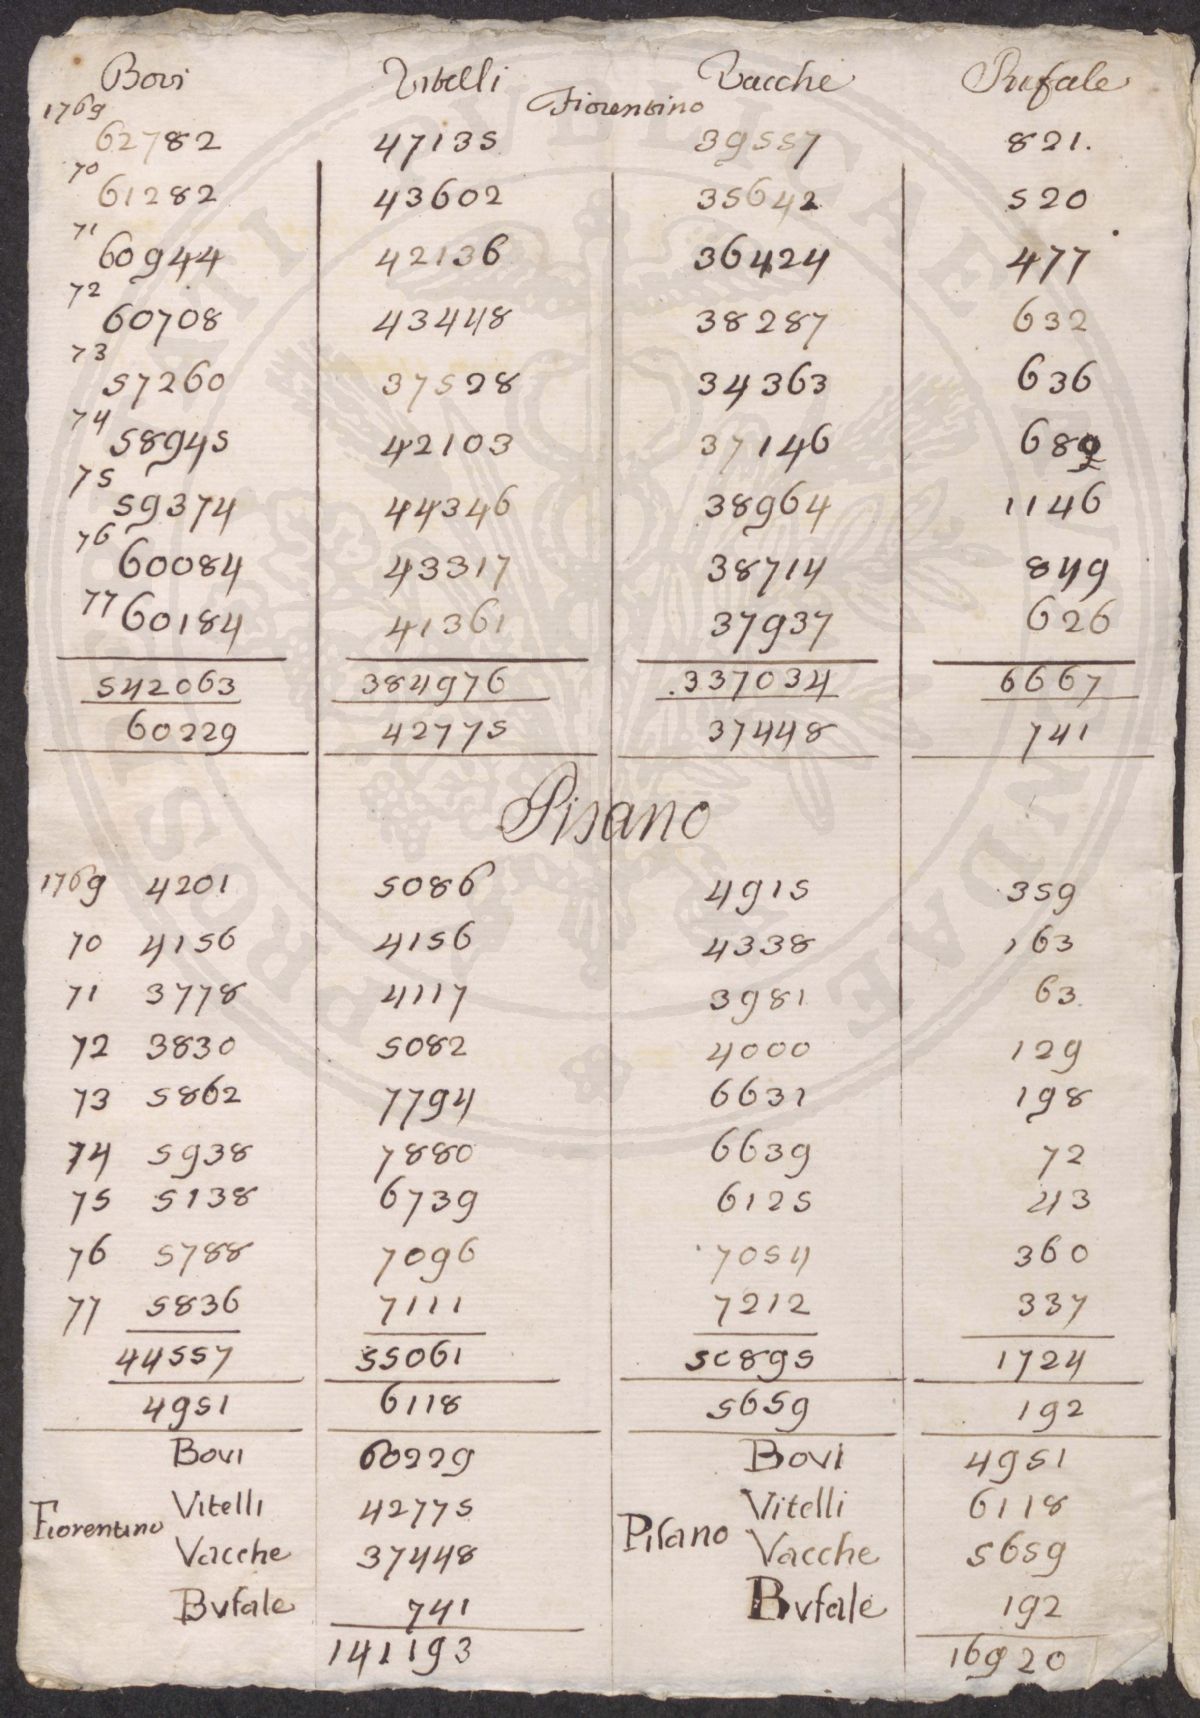 Bovi Vitelli Vacche Bufale
Fiorentino
1769
62782 47135 39557 821.
70
61282 43602 35642 520
71
60944 42136 36424 477
72
60708 43448 38287 632
73
57260 37528 34363 636
74
58945 42103 37146 689
75
59374 44346 38964 1146
76
60084 43317 38714 849
77 60184 41361 37937 626
542063 384976 .337034 6667
60229 42775 37448 741
Pisano
1769 4201 5086 4915 359
70 4156 4156 4338 163
71 3778 4117 3981 63
72 3830 5082 4000 129
73 5862 7794 6631 198
74 5938 7880 6639 72
75 5138 6739 6125 43
76 5788 7096 7054 360
77 5836 7111 7212 337
44557 55061 50895 1724
4951 6118 5659 192
Bovi 60229 Bovi 4951
Fiorentino Vitelli 42775 Pisano Vitelli 6118
Vacche 37448 Vacche 5659
Bvfale 741 Bvfale 192
141193 16920